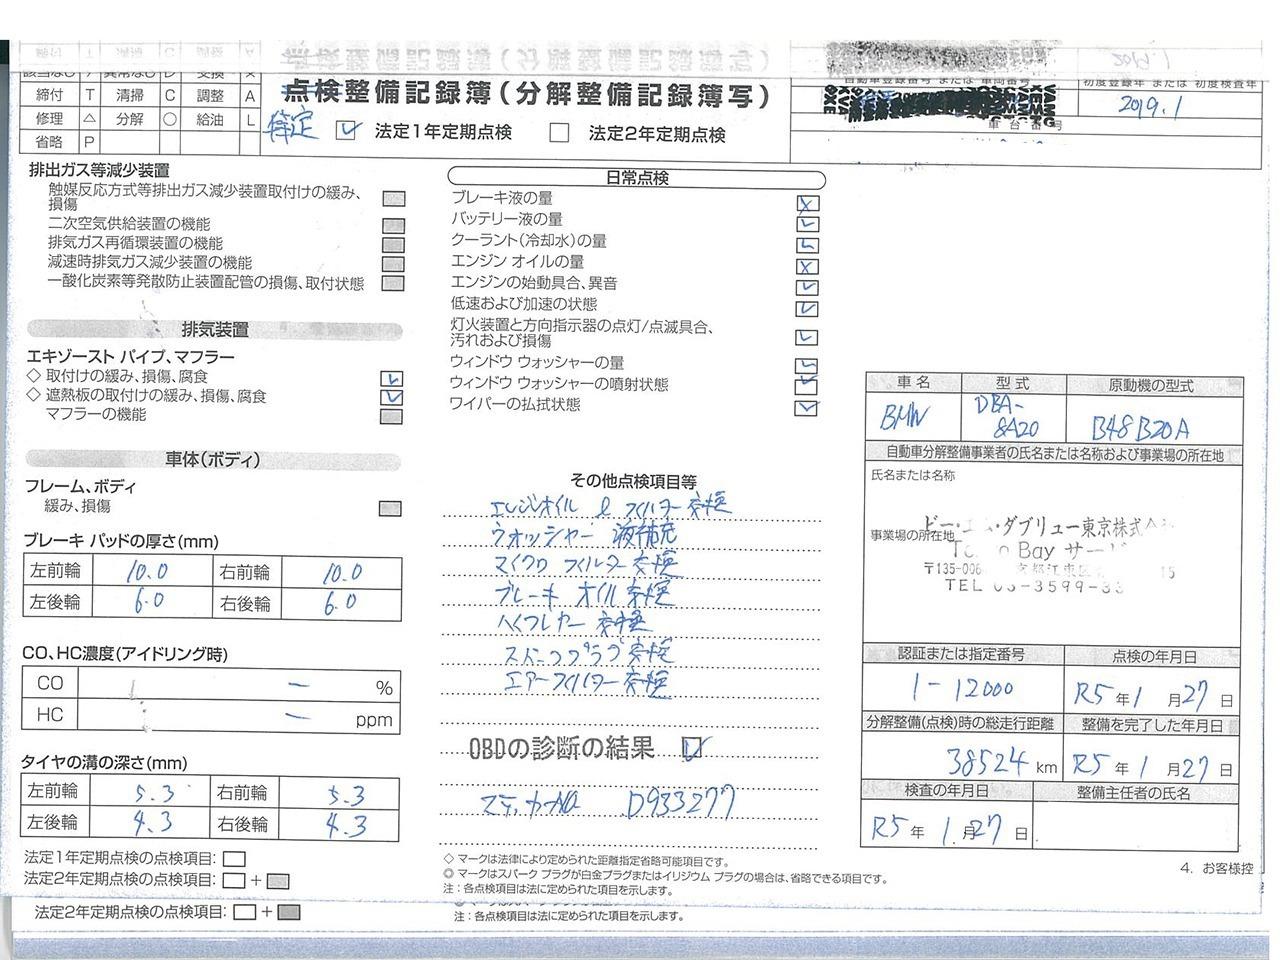 締付 T 清掃 C 調整 A
修理 △ 分解 ○ 給油 L
省略 P
点検整備記録簿(分解整備記録簿写)
法定1年定期点検 法定2年定期点検
自動車登録番号 または 車両番号
初度登録年 または 初度検査年
2019.1
車台番号
排出ガス等減少装置
触媒反応方式等排出ガス減少装置取付けの緩み、
損傷
二次空気供給装置の機能
排気ガス再循環装置の機能
減速時排気ガス減少装置の機能
一酸化炭素等発散防止装置配管の損傷、取付状態
排気装置
エキゾースト パイプ、マフラー
◇ 取付けの緩み、損傷、腐食
◇ 遮熱板の取付けの緩み、損傷、腐食
マフラーの機能
車体(ボディ)
フレーム、ボディ
緩み、損傷
ブレーキ パッドの厚さ(mm)
左前輪 10.0 右前輪 10.0
左後輪 6.0 右後輪 6.0
CO、HC濃度(アイドリング時)
CO — %
HC — ppm
タイヤの溝の深さ(mm)
左前輪 5.3 右前輪 5.3
左後輪 4.3 右後輪 4.3
法定1年定期点検の点検項目:
法定2年定期点検の点検項目: +
法定2年定期点検の点検項目: +
日常点検
ブレーキ液の量
バッテリー液の量
クーラント(冷却水)の量
エンジン オイルの量
エンジンの始動具合、異音
低速および加速の状態
灯火装置と方向指示器の点灯/点滅具合、
汚れおよび損傷
ウィンドウ ウォッシャーの量
ウィンドウ ウォッシャーの噴射状態
ワイパーの払拭状態
その他点検項目等
エンジンオイル & フィルター 交換
ウォッシャー 液補充
マイクロ フィルター 交換
ブレーキ オイル 交換
ハイフレカー 交換
スパークプラグ 交換
エアーフィルター 交換
OBDの診断の結果
ステッカーNo D933277
◇ マークは法律により定められた距離指定省略可能項目です。
◎ マークはスパーク プラグが白金プラグまたはイリジウム プラグの場合は、省略できる項目です。
注:各点検項目は法に定められた項目を示します。
注:各点検項目は法に定められた項目を示します。
車名 型式 原動機の型式
BMW DBA-8A20 B48B20A
自動車分解整備事業者の氏名または名称および事業場の所在地
氏名または名称
ビー・エム・ダブリュー東京株式会
事業場の所在地
Bay サー
〒135-006 京都江東区 15
TEL 03-3599-33
認証または指定番号 点検の年月日
1-12000 R5年1月27日
分解整備(点検)時の総走行距離 整備を完了した年月日
38524 km R5年1月27日
検査の年月日 整備主任者の氏名
R5年1月27日
4. お客様控